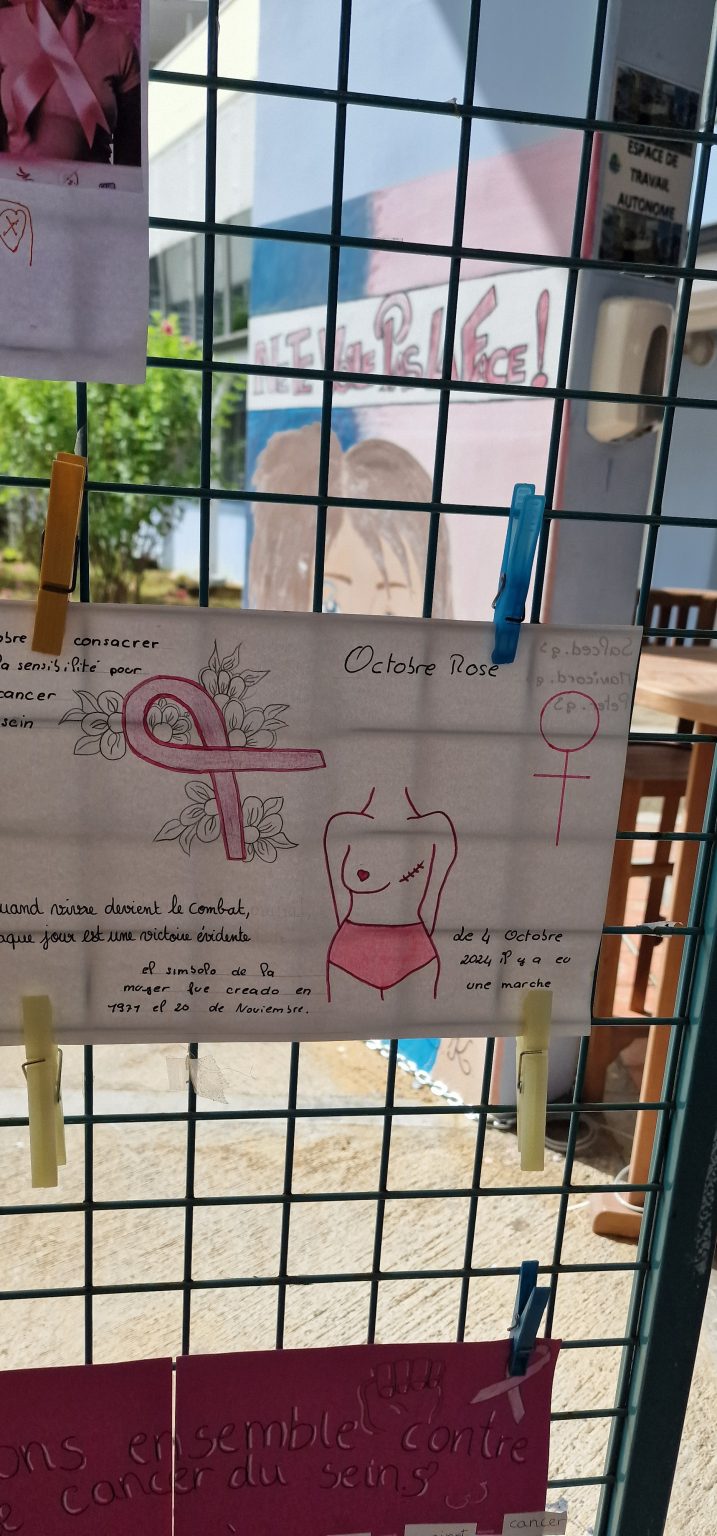 ESPACE DE
TRAVAIL
AUTONOME
NE TE VOILE PAS LA FACE!
obre consacrer
a sensibilité pour
cancer
sein
Octobre Rose
quand vivre devient le combat,
aque jour est une victoire évidente
el simbolo de la
mujer fue creado en
1971 el 20 de Noviembre.
de 4 Octobre
2024 il y a eu
une marche
ons ensemble contre
e cancer du seins
cancer